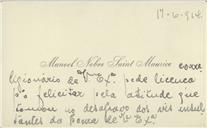 17-6-914.
Manoel Nobre Saint Maurice corre
ligionário de Vª Exª. pede licença
pª felicitar pela attitude que
tomou no desafravo dos vis insul
tantes da honra de Vª Exª